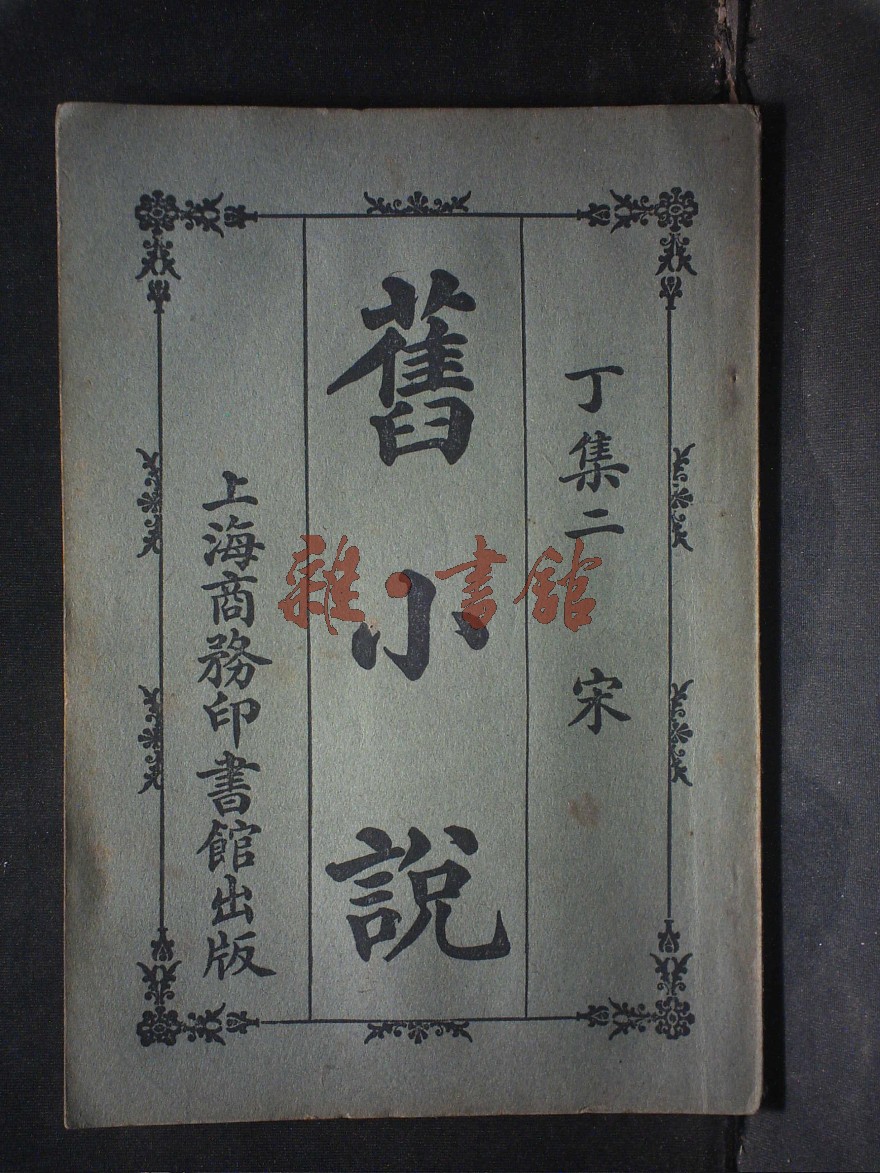 丁集二 宋
舊小說
上海商務印書館出版
雜·書館